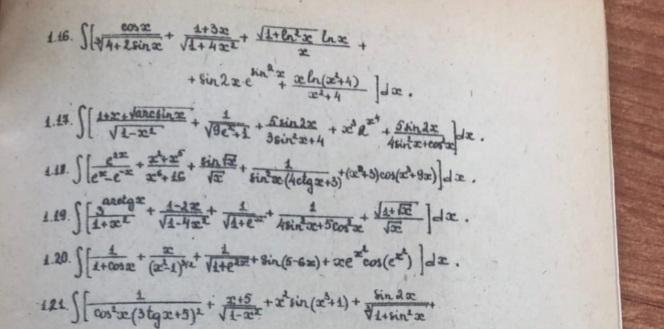 1.16. ∫[cosx/∛(4+2sinx) + (1+3x)/√(1+4x²) + (√(1+ln²x) lnx)/x +
+ sin2x·e^(sin²x) + (x ln(x²+4))/(x²+4)]dx.
1.17. ∫[(1+x+√(arcsinx))/√(1-x²) + 1/√(9eˣ+1) + 5sin2x/(3sin²x+4) + x³e^(x⁴) + 5sin2x/(4sin²x+cos²x)]dx.
1.18. ∫[e^(2x)/(eˣ-e⁻ˣ) + /(x⁶+16) + sin√x/√x + 1/(sin²x(4ctgx+3)) + (x²+3)cos(x³+9x)]dx.
1.19. ∫[3^(arctgx)/(1+x²) + (1-2x)/√(1-4x²) + 1/ + 1/(4sin²x+5cos²x) + √(1+√x)/√x]dx.
1.20. ∫[1/(1+cosx) + x/(x²-1)^(3/2) + 1/√(1+e^(2x)) + sin(5-6x) + xe^(x²)cos(e^(x²))]dx.
1.21. ∫[1/(cos²x(3tgx+5)²) + (x+5)/√(1-x²) + x²sin(x³+1) + sin2x/√(1+sin²x) +